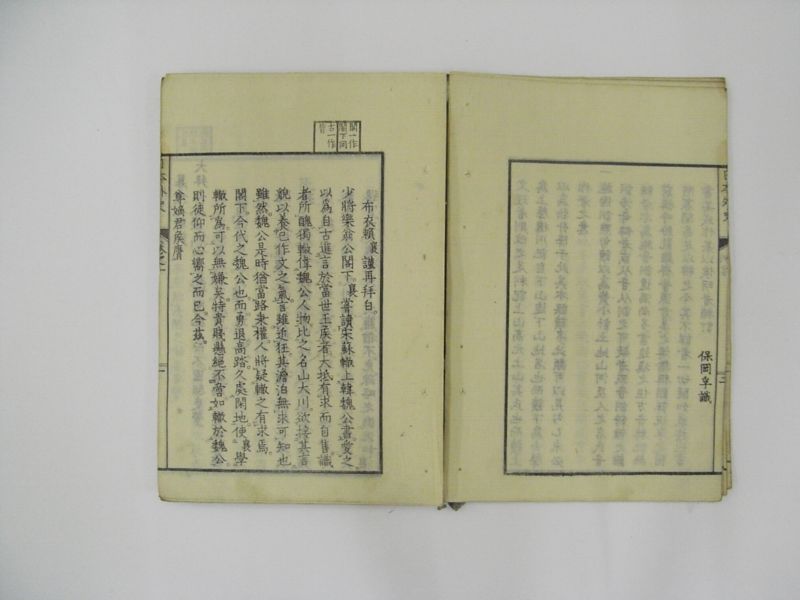 保岡孚識
閣一作
閤下同
古一作
布衣賴襄謹再拜白。
少將樂翁公閣下。襄嘗讀宋蘇轍上韓魏公書愛之
以爲自古進言於當世王侯者大抵有求而自售識
者所醜獨轍偉魏公人物比之名山大川欲接其言
貌以養己作文之氣言雖近狂其澹泊無求可知也
雖然魏公是時猶當路秉權人將疑轍之有求焉
閣下今代之魏公也而勇退高踏久處閑地使襄學
轍所爲可以無嫌矣特貴賤懸絕不啻如轍於魏公
則徒仰而心嚮之而已今茲。
尊嫡君侯膺
日本外史